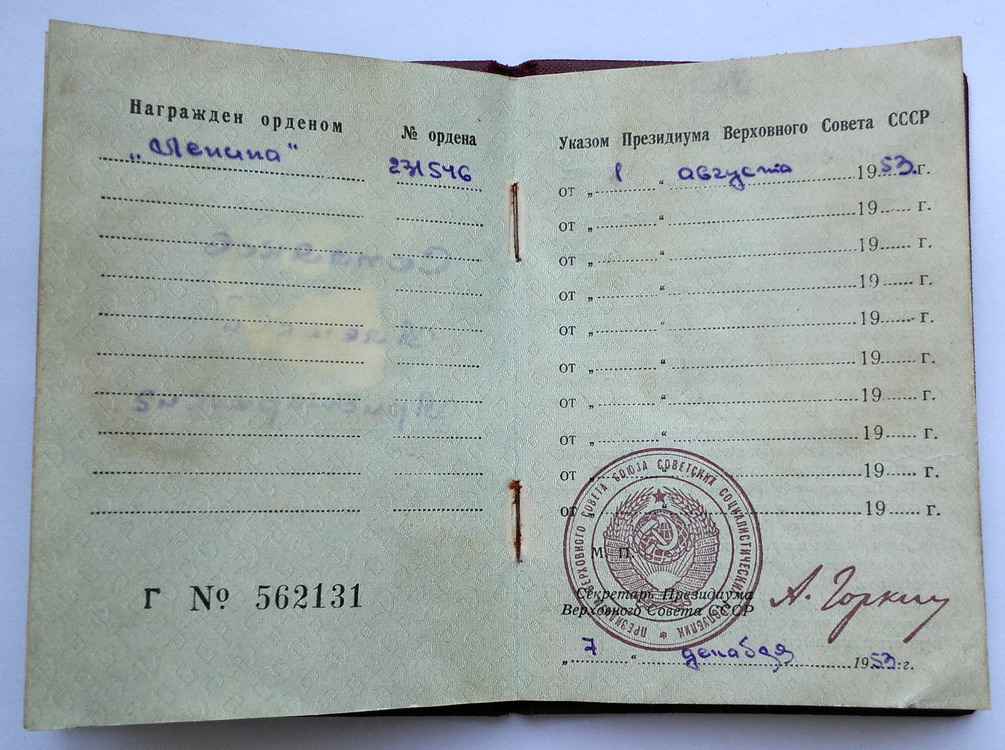 Награжден орденом № ордена
„Ленина“ 271546
Указом Президиума Верховного Совета СССР
от „ 1 “ августа 1953 г.
от „ “ 19 г.
от „ “ 19 г.
от „ “ 19 г.
от „ “ 19 г.
от „ “ 19 г.
от „ “ 19 г.
от „ “ 19 г.
от „ “ 19 г.
от „ “ 19 г.
Г № 562131
ПРЕЗИДИУМ ВЕРХОВНОГО СОВЕТА СОЮЗА СОВЕТСКИХ СОЦИАЛИСТИЧЕСКИХ РЕСПУБЛИК
М. П.
Секретарь Президиума
Верховного Совета СССР
А. Горкин
„ 7 “ декабря 1953 г.